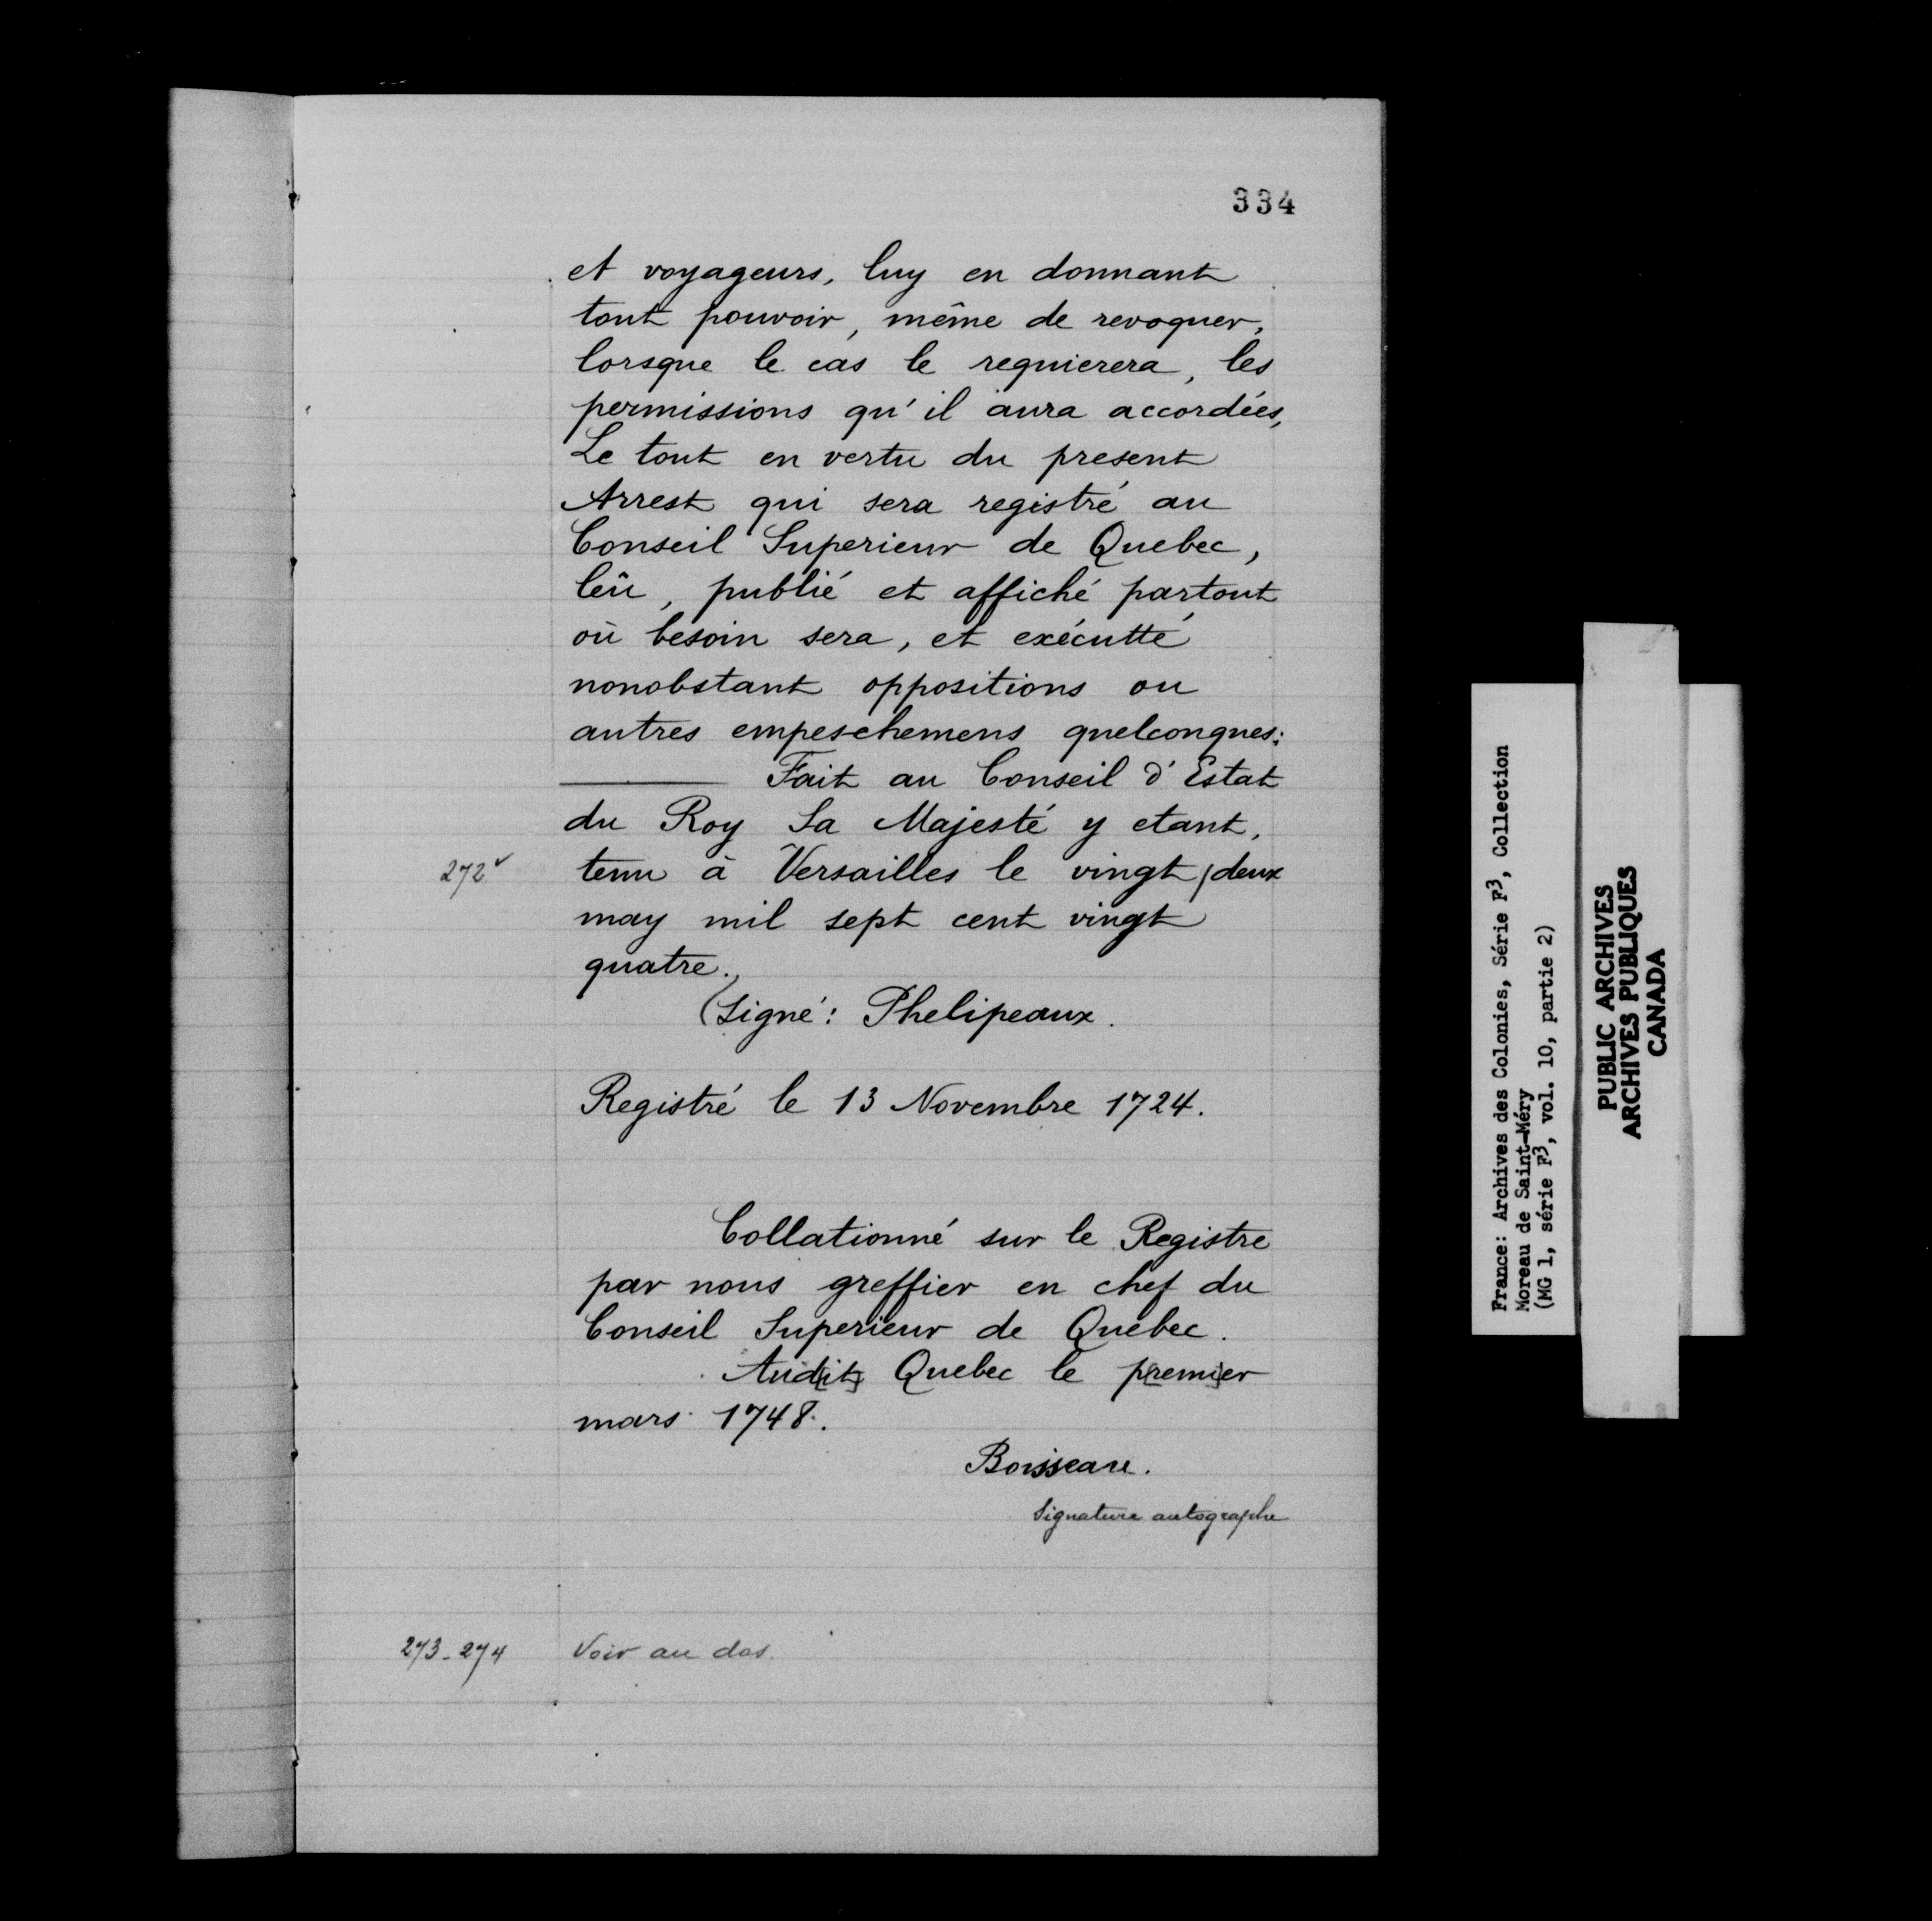 334
et voyageurs, luy en donnant
tout pouvoir, même de revoquer,
lorsque le cas le requierera, les
permissions qu'il aura accordées,
Le tout en vertu du present
Arrest qui sera registré au
Conseil Superieur de Quebec,
lêu, publié et affiché partout
où besoin sera, et exécutté
nonobstant oppositions ou
autres empeschemens quelconques:
Fait au Conseil d'Estat
du Roy Sa Majesté y etant,
272v tenu à Versailles le vingt/deux
may mil sept cent vingt
quatre.
(Signé: Phelipeaux.
Registré le 13 Novembre 1724.
Collationné sur le Registre
par nous greffier en chef du
Conseil Superieur de Quebec.
Aud[it] Quebec le p[remi]er
mars 1748.
Boisseau.
Signature autographe
273-274 Voir au dos.
France: Archives des Colonies, Série F3, Collection
Moreau de Saint-Méry
(MG 1, série F3, vol. 10, partie 2)
PUBLIC ARCHIVES
ARCHIVES PUBLIQUES
CANADA